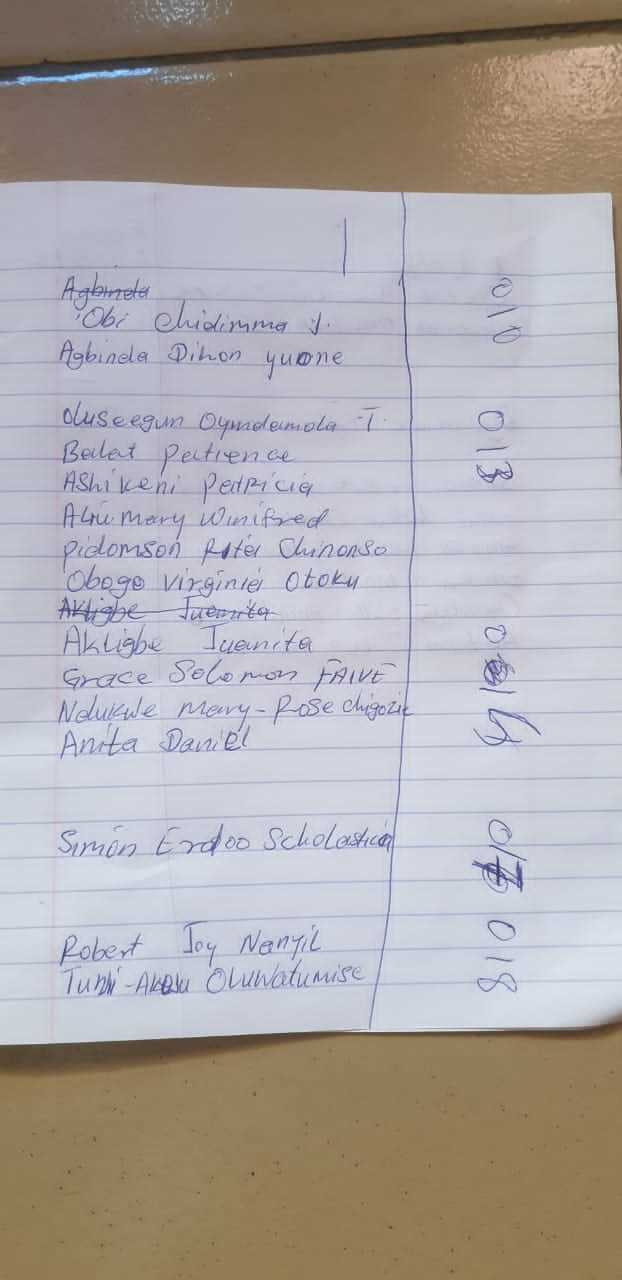 Agbinda
Obi Chidimma J.
Agbinda Dihon yuone
010
Oluseegun Oyindamola T.
013
Balat Patience
Ashikeni Patricia
Aliu mary Winifred
Pidomson Rita Chinonso
Obogo Virginia Otoku
Akligbe Juanita
Akligbe Juanita
Grace Solomon FAIVE
Ndukwe mary-Rose chigozie
Anita Daniel
Simon Erdoo Scholastica
Robert Joy Nanyil
018
Oluwatumise